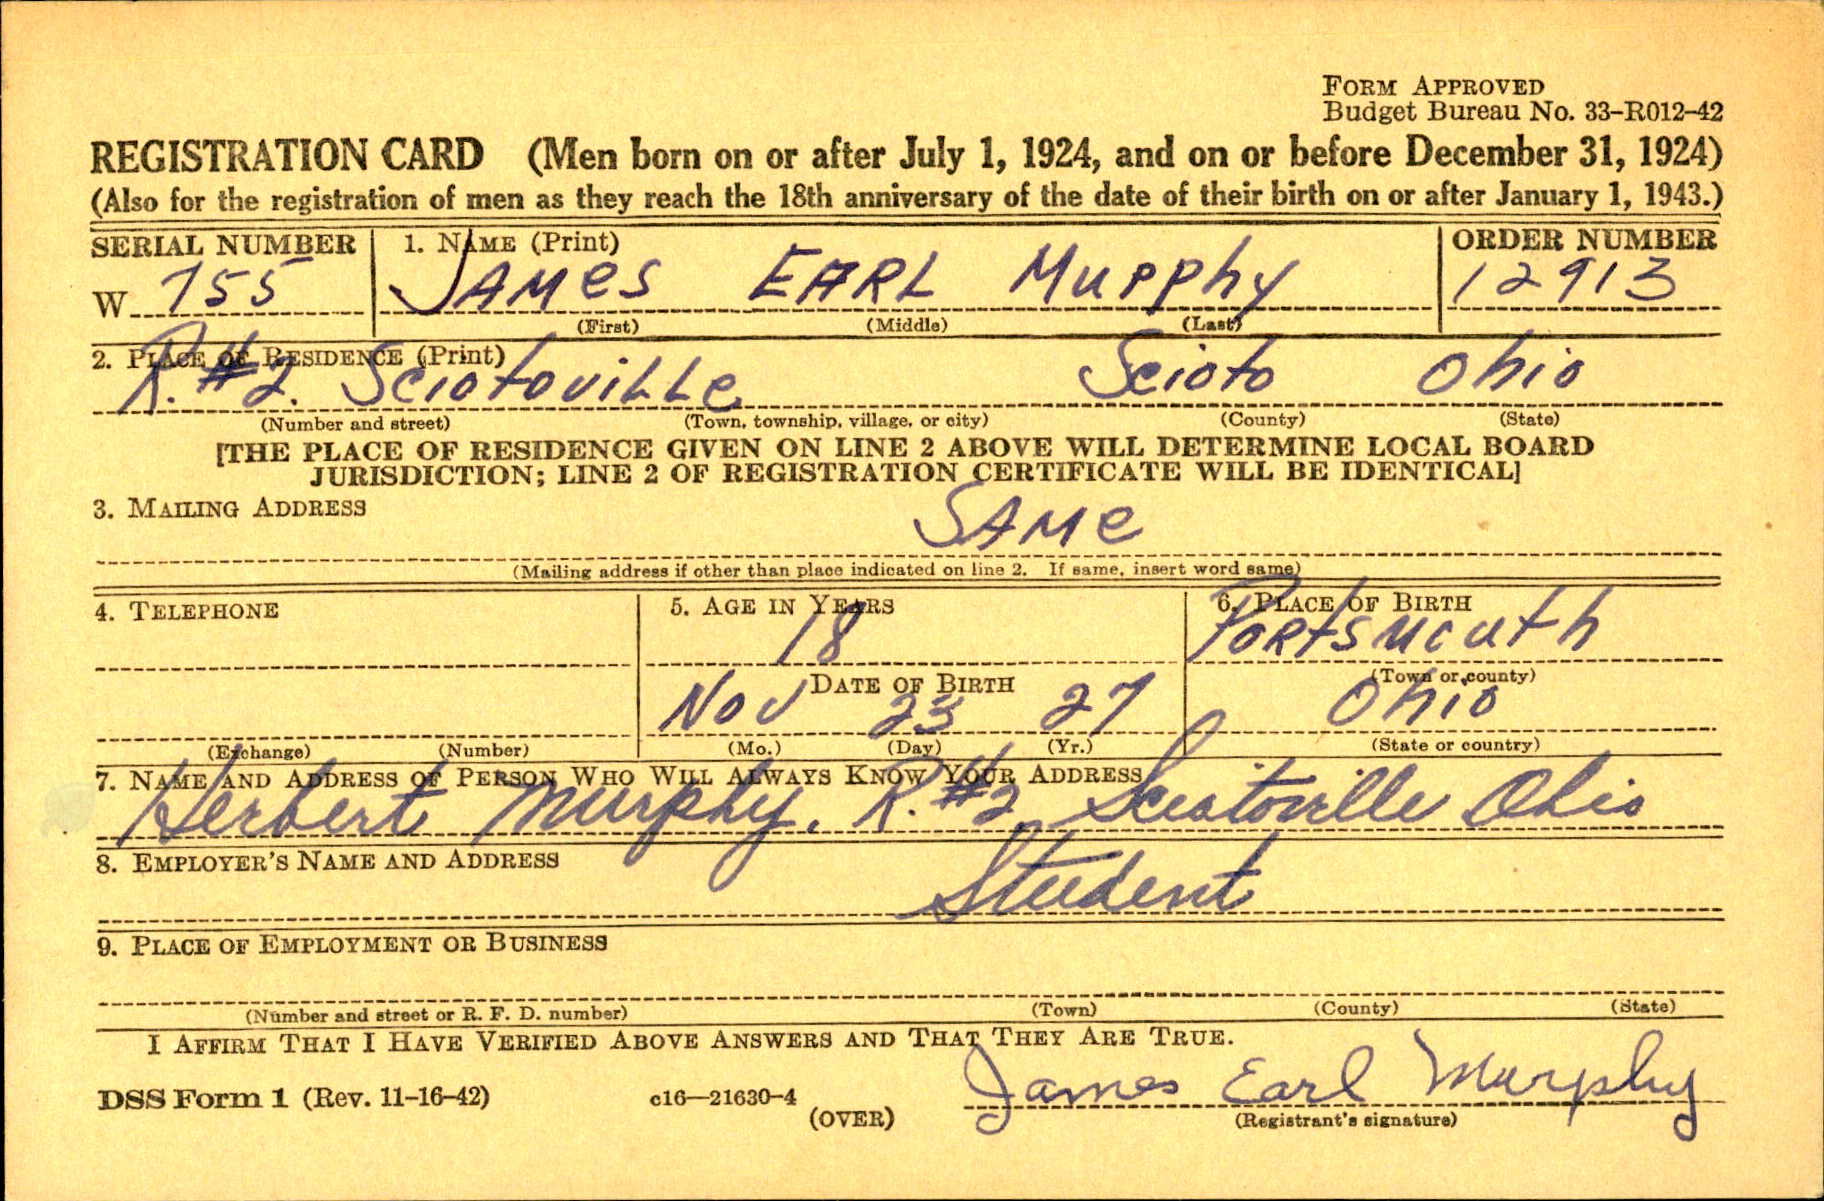 FORM APPROVED
Budget Bureau No. 33-R012-42
REGISTRATION CARD (Men born on or after July 1, 1924, and on or before December 31, 1924)
(Also for the registration of men as they reach the 18th anniversary of the date of their birth on or after January 1, 1943.)
SERIAL NUMBER 1. NAME (Print) ORDER NUMBER
W 755 JAMES EARL MURPHY 12913
(First) (Middle) (Last)
2. PLACE OF RESIDENCE (Print)
R. #2. Sciotoville Scioto Ohio
(Number and street) (Town, township, village, or city) (County) (State)
[THE PLACE OF RESIDENCE GIVEN ON LINE 2 ABOVE WILL DETERMINE LOCAL BOARD
JURISDICTION; LINE 2 OF REGISTRATION CERTIFICATE WILL BE IDENTICAL]
3. MAILING ADDRESS
SAME
(Mailing address if other than place indicated on line 2. If same, insert word same)
4. TELEPHONE 5. AGE IN YEARS 6. PLACE OF BIRTH
18 Portsmouth
DATE OF BIRTH (Town or county)
Nov 23 27 Ohio
(Exchange) (Number) (Mo.) (Day) (Yr.) (State or country)
7. NAME AND ADDRESS OF PERSON WHO WILL ALWAYS KNOW YOUR ADDRESS
Herbert Murphy, R. #2 Sciotoville Ohio
8. EMPLOYER'S NAME AND ADDRESS
Student
9. PLACE OF EMPLOYMENT OR BUSINESS
(Number and street or R. F. D. number) (Town) (County) (State)
I AFFIRM THAT I HAVE VERIFIED ABOVE ANSWERS AND THAT THEY ARE TRUE.
DSS Form 1 (Rev. 11-16-42) c16—21630-4 James Earl Murphy
(OVER) (Registrant's signature)